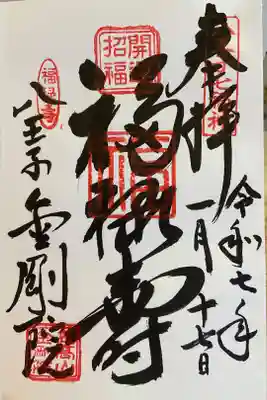 奉拝
令和七年
一月十七日
開運
招福
福禄寿
福禄寿
八王子金剛院